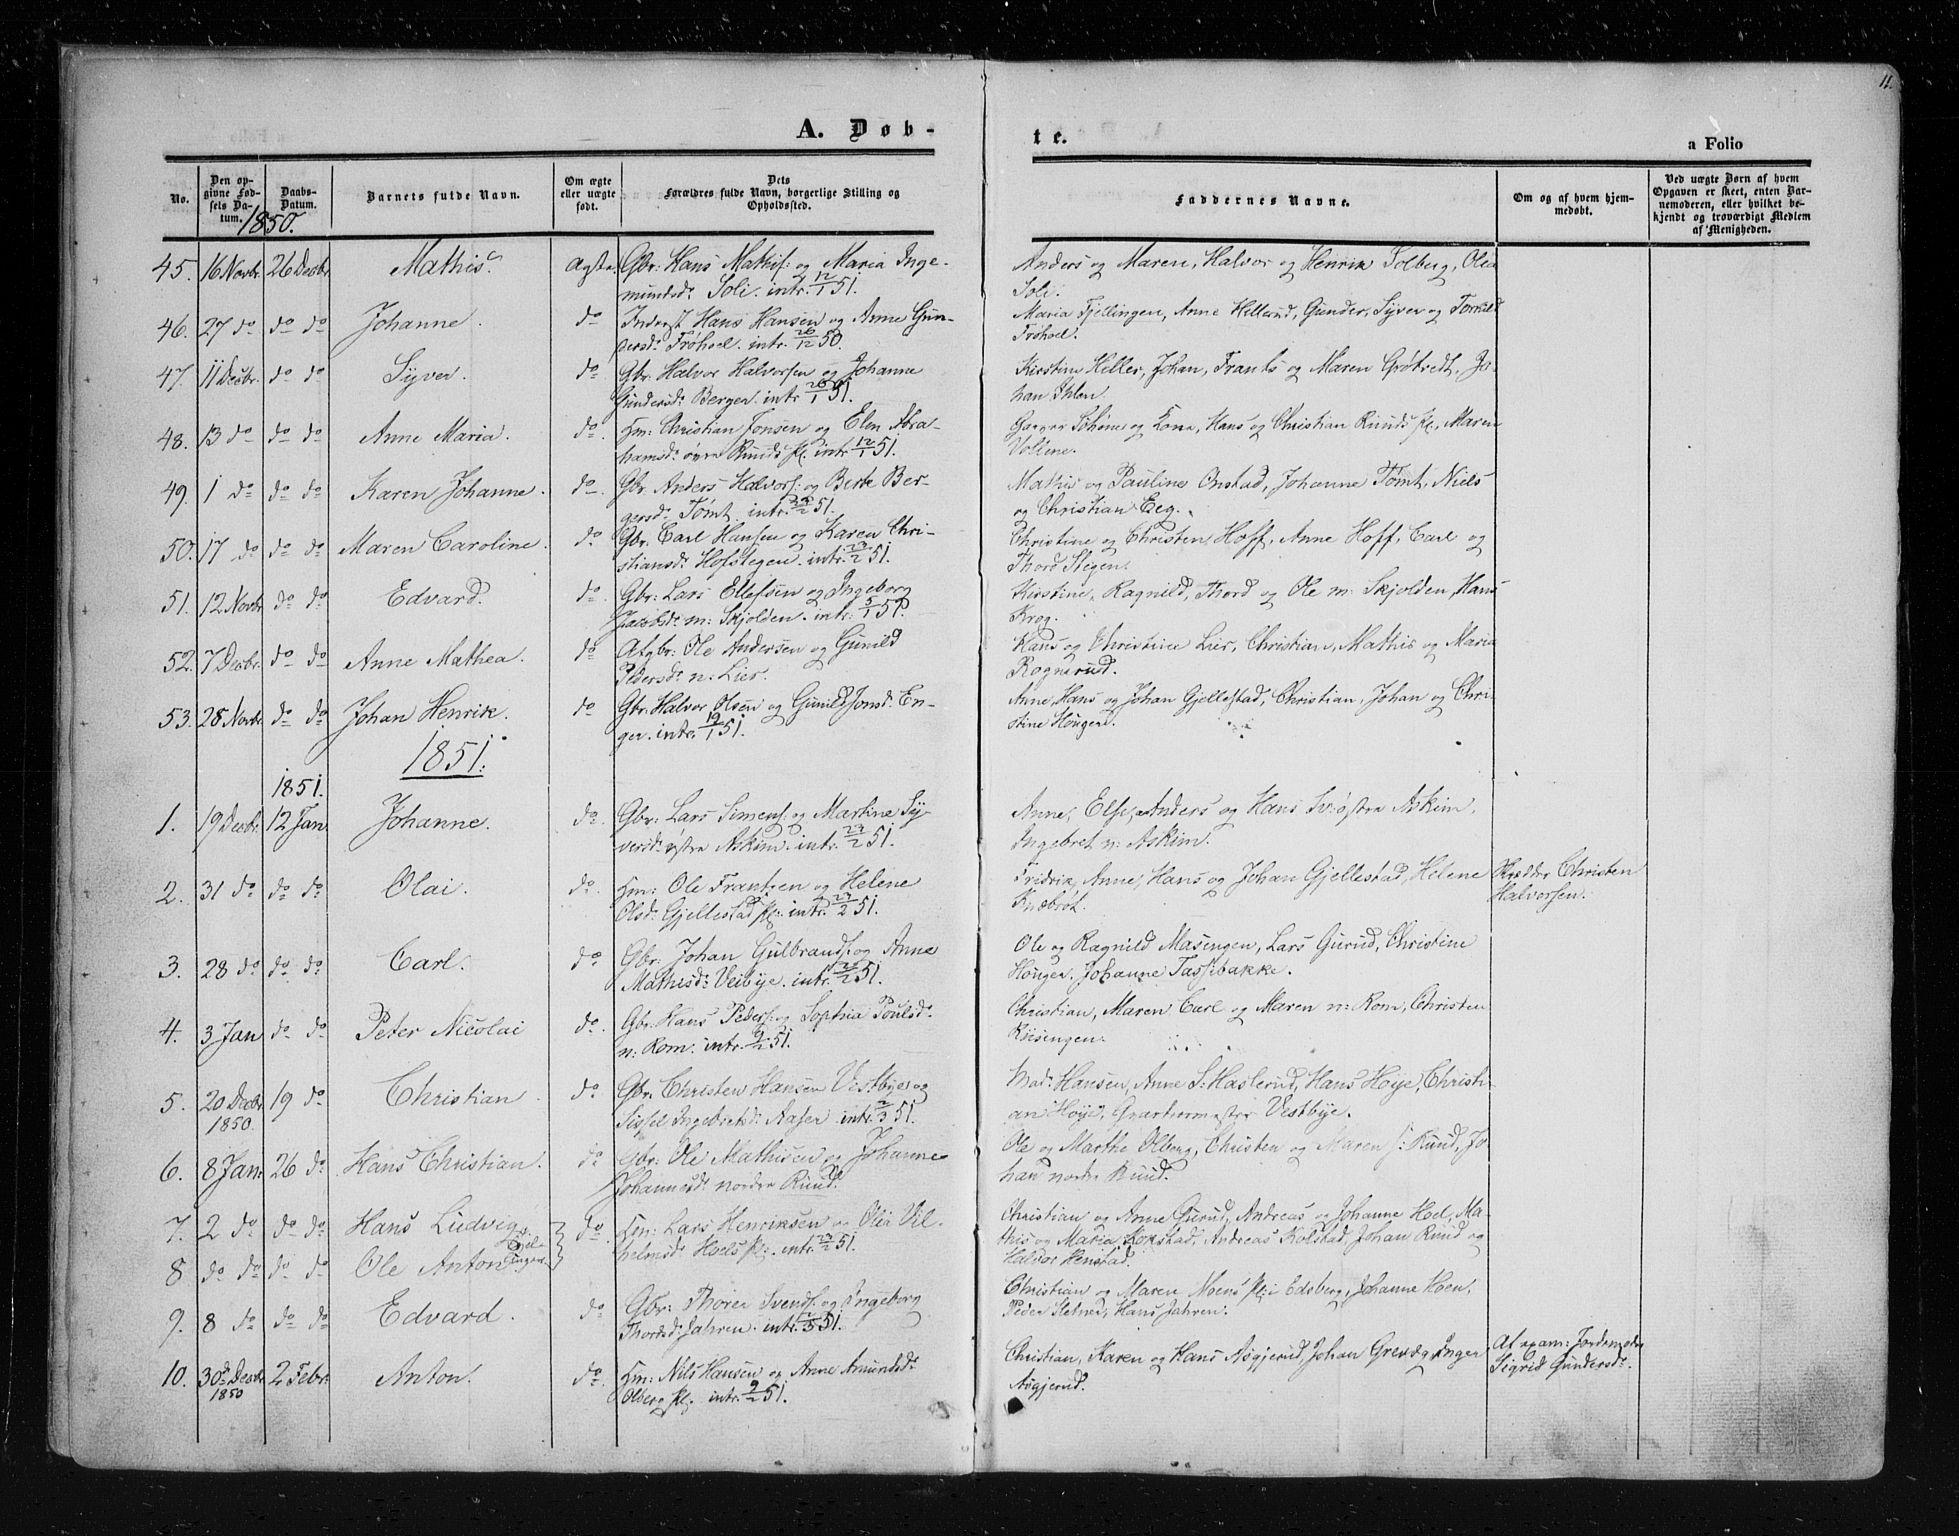 11.
A. Døb-
te.
a Folio
No.
Den op-
givne Fød-
sels Da-
tum.
Daabs-
Datum.
Barnets fulde Navn.
Om ægte
eller uægte
født.
Dets
Forældres fulde Navn, borgerlige Stilling og
Opholdssted.
Faddernes Navne.
Om og af hvem hjem-
medøbt.
Ved uægte Børn af hvem
Opgaven er skeet, enten Bar-
nemoderen, eller hvilket be-
kjendt og troværdigt Medlem
af Menigheden.
1850.
45. 16 Novbr. 26 Decbr. Mathis. ægte Gbr: Hans Mathis: og Maria Inge- Anders og Maren, Halvor og Henrik Solberg, Olea
mundsd: Soli. intr. 12/1 51. Soli.
46. 27 do do do Johanne. do Inderst Hans Hansen og Anne Gun- Maria Fjellingen, Anne Hillerud, Gunder, Syver og
dersd: Frøhoel. intr. 26/12 50. Frøhoel.
47. 11 Decbr. do do Syver. do Gbr. Halvor Halvorsen og Johanne Kirstine Heller, Johan, Frants og Maren Grøtvedt, Jo-
Gundersd: Bergen. intr 26/1 51. han Ihlen.
48. 13 do do do Anne Maria. do. Hm: Christian Jonsen og Elen Abra- og Lona, Hans og Christian Ruuds pl., Maren
hamsd: øvre Ruuds pl. intr 12/1 51. Vollene.
49. 1 do do do Karen Johanne. do Gbr. Anders Halvors: og Berte Ber- Mathis og Pauline Onstad, Johanne Tømt, Niels
gersd: Tømt. intr. 51. og Christian Eeg.
50. 17 do do do Maren Caroline. do Gbr. Carl Hansen og Karen Chri- Christine og Christen Hoff, Anne Hoff, Carl og
stiansd: Hofstegen. intr. 23/2 51. Thord Stegen.
51. 12 Novbr do do Edvard. do. Gbr: Lars Ellefsen og Ingeborg Kirstine, Ragnild, Thord og Ole m: Skjolden, Hans
Jacobsd: m: Skjolden. intr. 5/1 51. Krog.
52. 7 Decbr. do do Anne Mathea. do Afgbr: Ole Andersen og Gunild Hans og Christine Lier, Christian, Mathis og Maria
Pedersd: n. Lier. Rognerud.
53. 28 Novbr. do do Johan Henrik. do Gbr. Halvor Olsen og Gunild Jonsd. En- Anne, Hans og Johan Gjellestad, Christian, Johan og Chri-
ger. intr. 19/1 51. stine Houger.
1851.
1851.
1. 19 Decbr. 12 Jan Johanne. do. Gbr: Lars Simens: og Martine Sy- Anne, Else, Anders og Hans østre Askim,
versd: østre Askim. intr. 23/2 51. Ingebret n: Askim.
2. 31 do do do Olai. do. Hm: Ole Frantzen og Helene Fridrik, Anne, Hans og Johan Gjellestad, Helene Skrædder Christen
Olsd: Gjellestad pl: intr. 23/2 51. Knæbrøt. Halvorsen.
3. 28 do do do Carl. do. Gbr: Johan Gulbrands: og Anne Ole og Ragnild Masengen, Lars Gurud, Christine
Mathisd: Veibye. intr. 51. Houger, Johanne Tassebakke.
4. 3 Jan do do Peter Nicolai do. Gbr. Hans Peders: og Sophia Poulsd: Christian, Maren Carl og Maren n: Rom, Christen
n: Rom. intr. 9/2 51. Risingen.
5. 20 Decbr. 19 do Christian. do Gbr: Christen Hansen Vestbye og Mad: Hansen, Anne S: Haslerud, Hans Høye, Christi-
1850. Sissel Ingebretsd: Aaser intr. 2/3 51. an Høye, Qvarteermester Vestbye.
6. 8 Jan: 26 do Hans Christian. do Gbr: Ole Mathisen og Johanne Ole og Marthe Olberg, Christen og Maren Ruud, Jo-
Johannesd: nordre Ruud. han nordre Ruud.
7. 2 do do do Hans Ludvig do. Hm: Lars Henriksen og Olea Vil- Christian og Anne Gurud, Andreas og Johanne Hoel, Ma-
helmsd: Hoels pl: intr. 23/2 51. this og Maria Kokstad, Andreas Kolstad, Johan Ruud og
8 do do do do Ole Anton Tvil-
linger. Halvor Henstad.
9. 8 do do do Edvard. do Gbr: Thorer Svends: og Ingeborg Christian og Maren Moens pl: i Edsberg, Johanne Hoen,
Thordsd: Jahren. intr. 51. Peder, Hans Jahren.
10. 30 Decbr 2 Febr: Anton. do. Hm: Nils Hansen og Anne Amundsd: Christian, Karen og Hans Asgjerud, Johan Grevæg, Inger Af exam: Jordemoder
1850 Olberg pl: intr. 9/2 51. Asgjerud. Sigrid Gundersd: